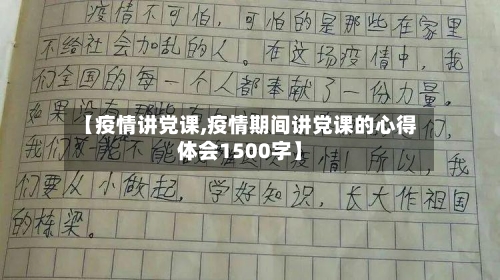 疫情不可怕，可怕的是那些在家里
不给社会加乱的人。在这场疫情中，我
们全国的每一个人都奉献了一份力量。
如果没有
【疫情讲党课,疫情期间讲党课的心得
体会1500字】
我们 不能 疫情！所以，我
们要从小做起，学好知识，长大作祖国
的栋梁。